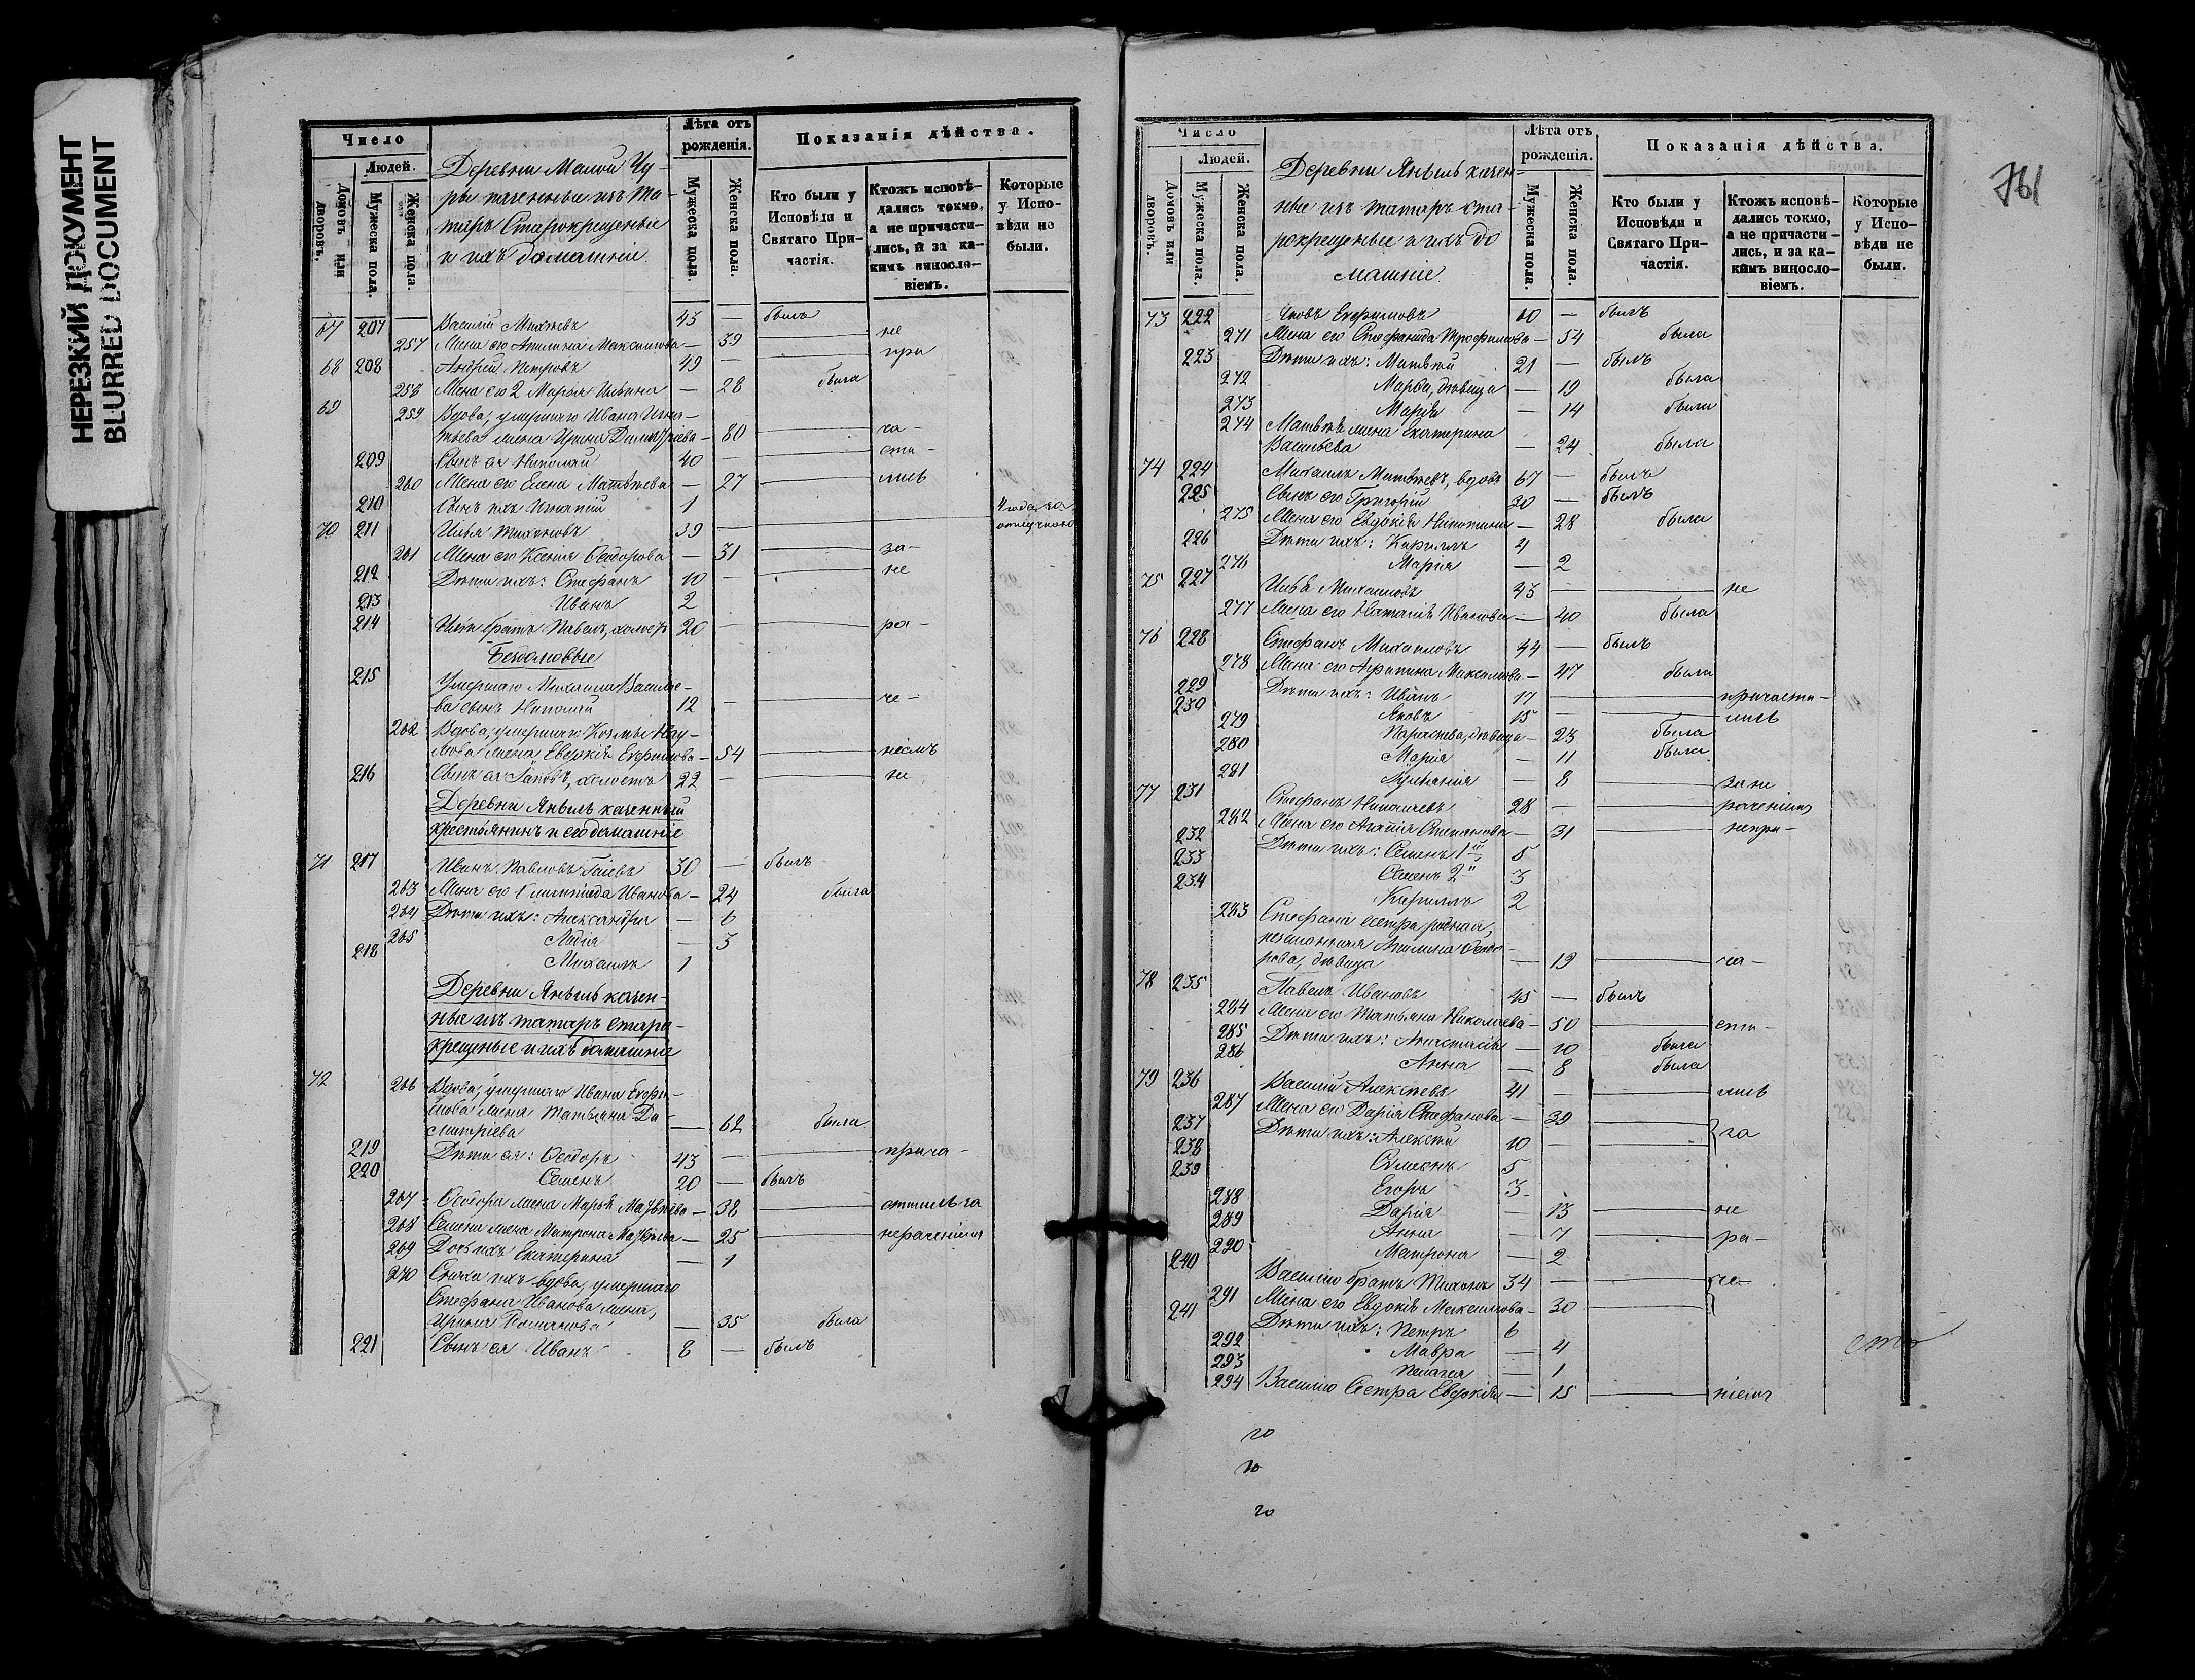 НЕРЕЗКИЙ ДОКУМЕНТ
BLURRED DOCUMENT
Число
Людей.
Домовъ или дворовъ.
Мужеска пола.
Женска пола.
Деревни Малой Чу-
ры казенные изъ Та-
таръ Старокрещеные
и ихъ домашніе.
Лѣта отъ рожденія.
Мужеска пола.
Женска пола.
Показанія дѣйства.
Кто были у Исповѣди и Святаго При-частія.
Ктожъ исповѣ-дались токмо, а не причасти-лись, и за ка-кимъ винослo-віемъ.
Которые у Испо-вѣди не были.
67 207 Василій 43 — былъ
257 Жена его Акилина Максимова — 39 — не
68 208 Андрей Петровъ 49 — при
258 Жена его 2 Марья Ильина — 28 была
69 259 Вдова, умершаго Ивана Игна-
тьева жена Ирина Димитріева — 80 — ча-
209 Сынъ ея Николай 40 — сти-
260 Жена его Елена Матвѣева — 27 — лись
210 Сынъ ихъ Игнатій 1 4 года за
70 211 Илья Тихоновъ 39 — отлучкою
261 Жена его Ксенія Ѳеодорова — 31 — за-
212 Дѣти ихъ: Стефанъ 10 — не
213 Иванъ 2
214 Ильи братъ Павелъ, холостъ 20 — ра-
Бездомовые
215 Умершаго Михаила Василье-
ва сынъ Николай 12 — че-
262 Вдова, умершаго Козмы Нау-
мова жена Евдокія Ефримова — 54 — ніемъ
216 Сынъ ея Іаковъ, холостъ 22 — не
Деревни Янылъ казенный
крестьянинъ и его домашніе
71 217 Иванъ Павловъ 30 — былъ
263 Жена его Олимпіада Иванова — 24 была
264 Дѣти ихъ: Александра — 6
265 Лидія — 3
218 Михаилъ 1
Деревни Янылъ казен-
ные изъ татаръ старо-
крещеные и ихъ домашніе
72 266 Вдова, умершаго Ивана Ефри-
мова жена Татьяна Ди-
митріева — 62 была
219 Дѣти ея: Ѳеодоръ 43 — прича-
220 Семенъ 20 — былъ
267 Ѳеодора жена Марья Матвѣева — 38 — стились за
268 Семена жена Матрона Матвѣева — 25 — нераченіемъ
269 Дочь ихъ Екатерина — 1
270 Сноха ихъ вдова, умершаго
Стефана Иванова жена,
Ирина — 35 была
221 Сынъ ея Иванъ 8 — былъ
761
Число
Людей.
Домовъ или дворовъ.
Мужеска пола.
Женска пола.
Деревни Янылъ казен-
ные изъ татаръ ста-
рокрещеные и ихъ до
машніе.
Лѣта отъ рожденія.
Мужеска пола.
Женска пола.
Показанія дѣйства.
Кто были у Исповѣди и Святаго При-частія.
Ктожъ исповѣ-дались токмо, а не причасти-лись, и за ка-кимъ винослo-віемъ.
Которые у Испо-вѣди не были.
73 222 Яковъ Ефримовъ 60 — былъ
271 Жена его Стефанида Трофимова — 54 была
223 Дѣти ихъ: Матвѣй 21 — былъ
272 Марѳа, дѣвица — 19 была
273 Марія — 14 была
274 Матвѣя жена Екатерина
Васильева — 24 была
74 224 Михаилъ Матвѣевъ, вдовъ 67 — былъ
225 Сынъ его Григорій 30 — былъ
275 Жена его Евдокія Никитина — 28 была
226 Дѣти ихъ: Кириллъ 4
276 Марія — 2
75 227 Илья Михаиловъ 43 — не
277 Жена его Наталія Иванова — 40 была
76 228 Стефанъ Михаиловъ 44 — былъ
278 Жена его Агрипина Максимова — 47 была
229 Дѣти ихъ: Иванъ 17 — причасти-
230 Яковъ 15 — лись
279 Параскева, дѣвица — 23 была
280 Марія — 11 была
281 Іуліанія — 8 — за не
77 231 Стефанъ Николаевъ 28 — раченіемъ
282 Жена его Агапія Степанова — 31 — непри-
232 Дѣти ихъ: Семенъ 1й 5
233 Семенъ 2й 3
234 Кириллъ 2
283 Стефана сестра родная,
незаконная Акилина Ѳеодо-
рова, дѣвица — 19 — ча-
78 235 Павелъ Ивановъ 45 — былъ
284 Жена его Татьяна Николаева — 50 — сти-
285 Дѣти ихъ: Анастасія — 10 была
286 Анна — 8 была
79 236 Василій Алексѣевъ 41 — лись
287 Жена его Дарія Стефанова — 39 — за
237 Дѣти ихъ: Алексѣй 10 —
238 Симеонъ 5
239 Егоръ 3
288 Дарія — 13 — не
289 Анна — 7 — ра-
290 Матрона — 2
240 Василію братъ Тихонъ 34 — че-
291 Жена его Евдокія Максимова — 30 —
241 Дѣти ихъ: Петръ 6
292 Мавра — 4
293 Пелагея — 1
294 Василію Сестра Евдокія — 15 — ніемъ
сто
го
го
го